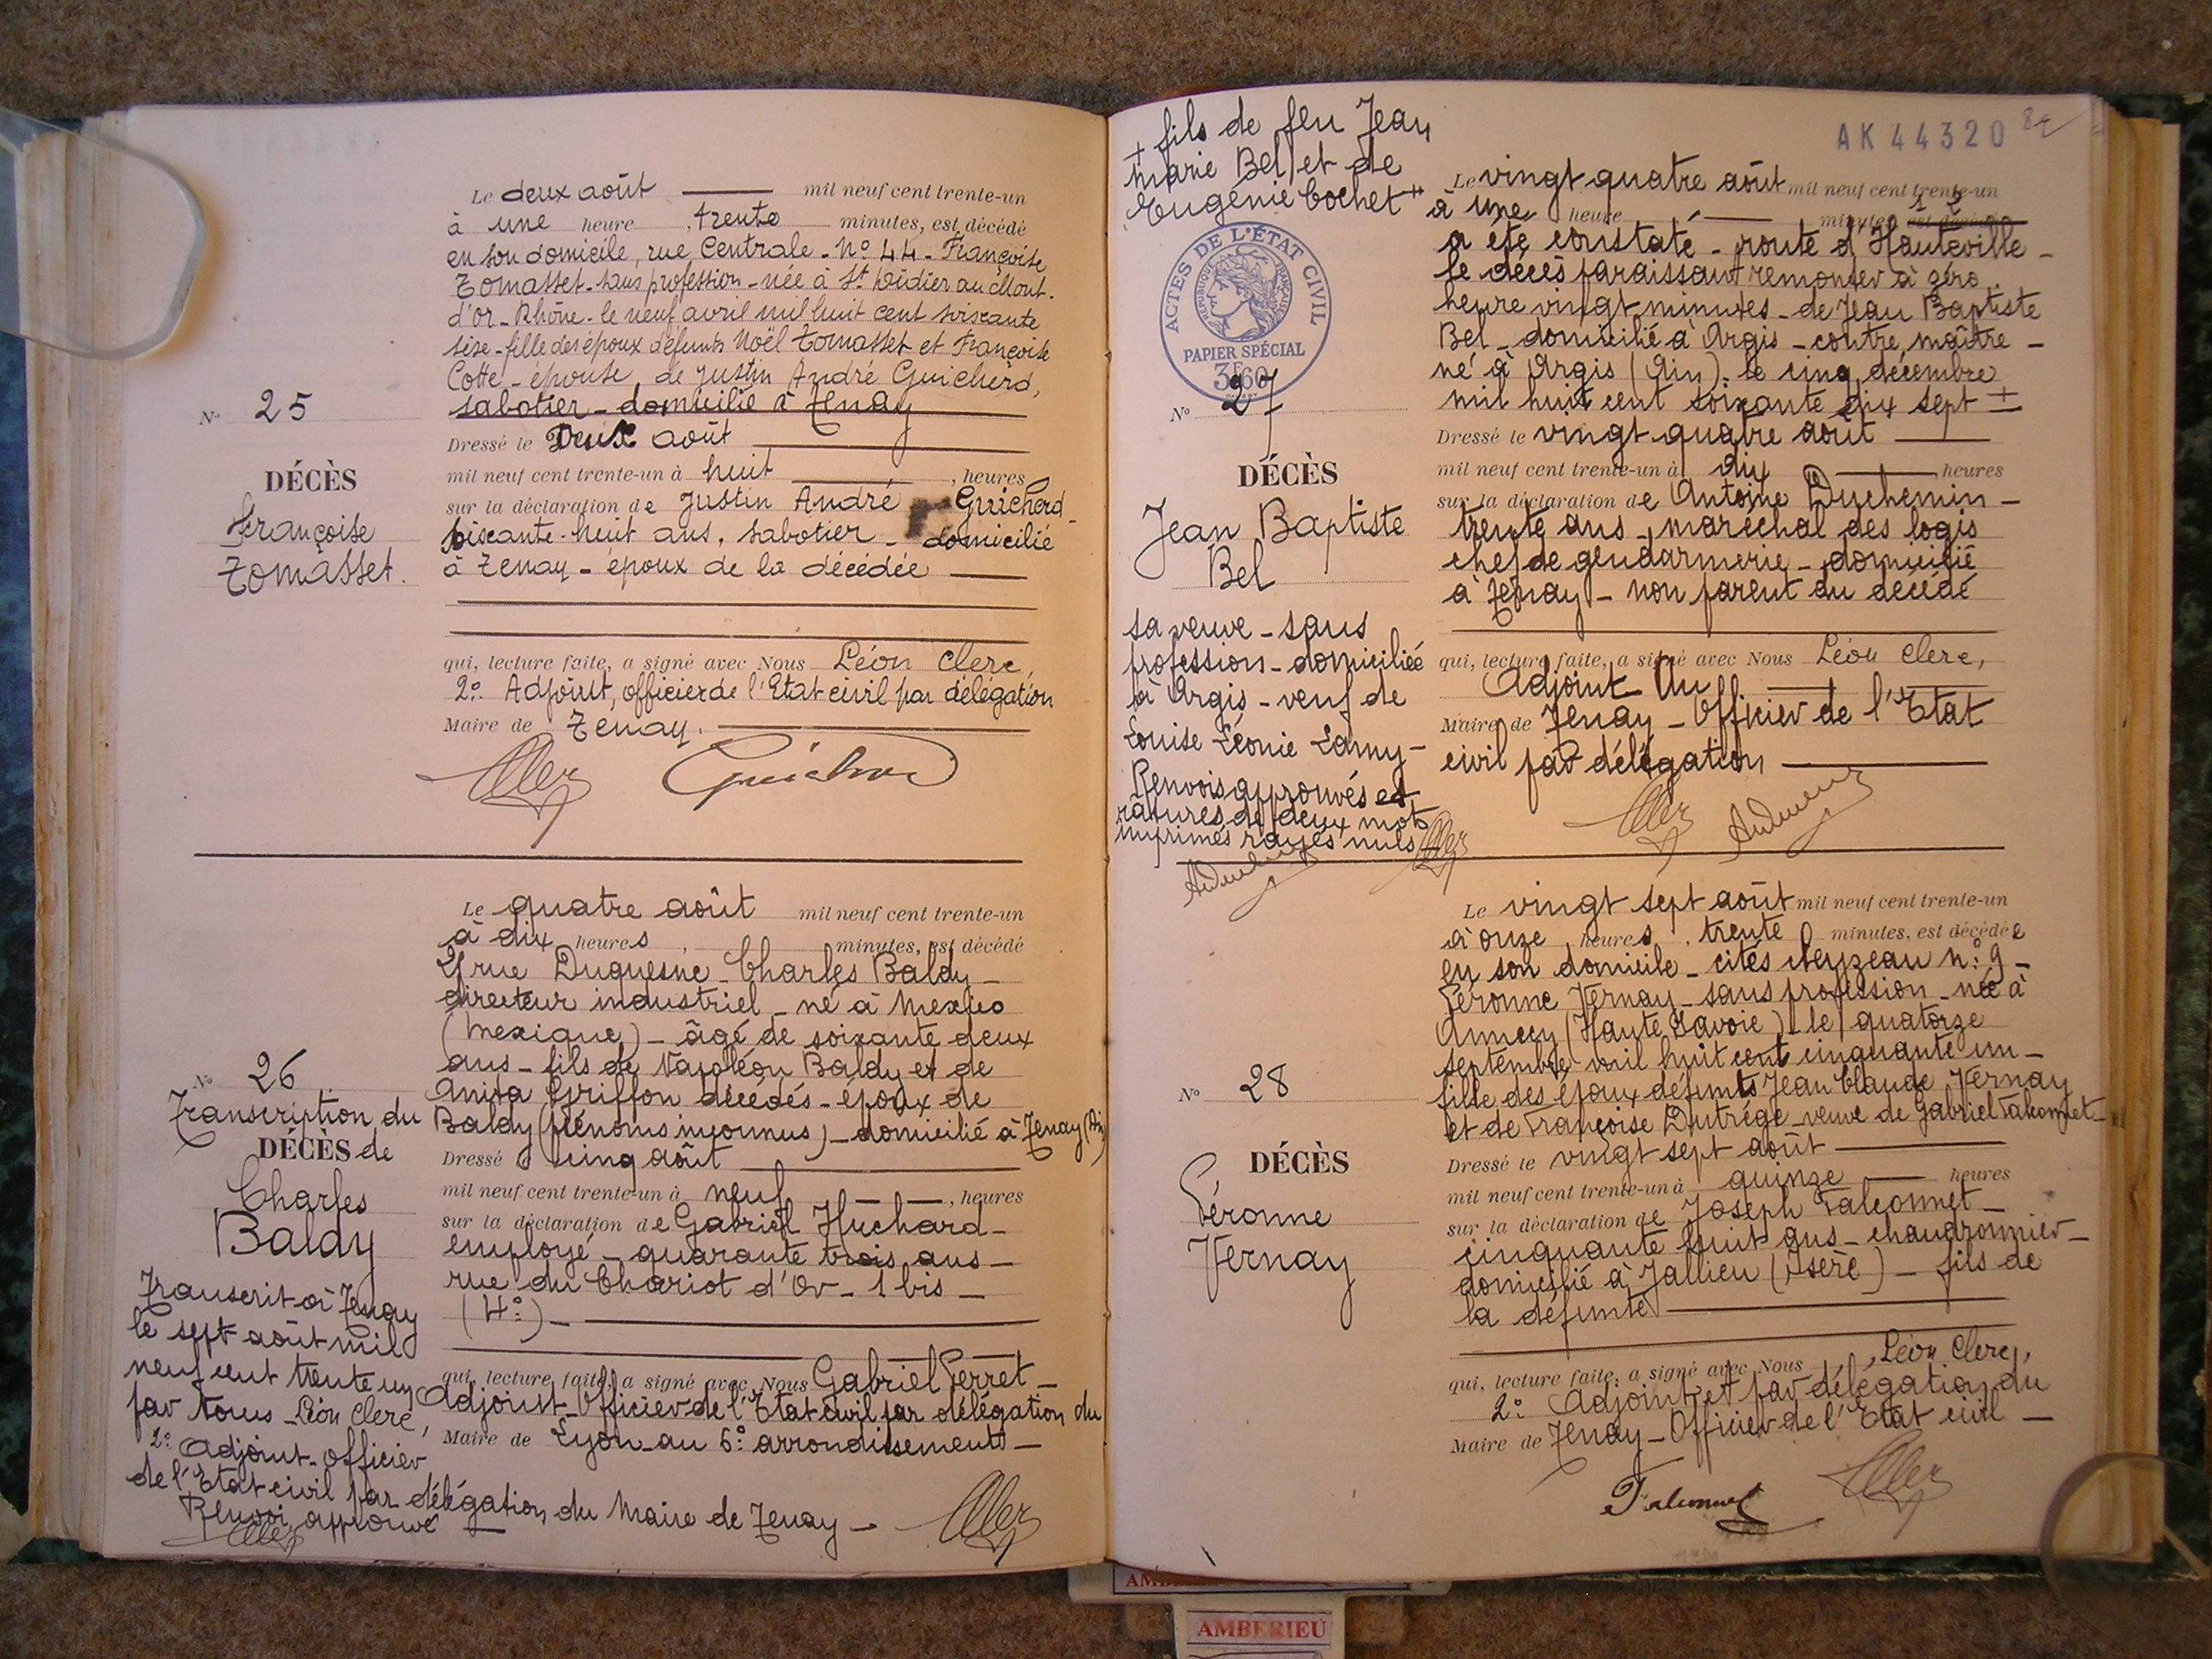 Le deux août mil neuf cent trente-un
à une heure, trente minutes, est décédé
en son domicile, rue Centrale - N° 44 - Françoise
Tomasset - sans profession - née à St Didier au Mont
d'or - Rhône - le neuf avril mil huit cent soixante
sise - fille des époux défunts Noël Tomasset et Françoise
Cotte - épouse de Justin André Guicherd,
sabotier - domicilié à Tenay
N° 25
DÉCÈS
Françoise
Tomasset.
Dressé le Deux août
mil neuf cent trente-un à huit, heures
sur la déclaration de Justin André Guicherd -
soixante-huit ans, sabotier - domicilié
à Tenay - époux de la décédée
qui, lecture faite, a signé avec Nous Léon Clerc,
2° Adjoint, officier de l'Etat civil par délégation
Maire de Tenay.
Guicherd
Le quatre août mil neuf cent trente-un
à dix heures, minutes, est décédé
rue Duquesne - Charles Baldy -
directeur industriel - né à Mexico
(Mexique) - âgé de soixante deux
ans - fils de Napoléon Baldy et de
Anita Griffon décédés - époux de
Baldy (prénoms inconnus) - domicilié à Tenay (Ain)
N° 26
Transcription du
DÉCÈS de
Charles
Baldy
Dressé le cinq août
mil neuf cent trente-un à neuf, heures
sur la déclaration de Gabriel Huchard -
employé - quarante trois ans -
rue du Chariot d'Or - 1 bis -
(4°) -
qui, lecture faite, a signé avec Nous Gabriel Perret -
Adjoint - Officier de l'Etat civil par délégation du
Maire de Lyon au 6° arrondissement -
Transcrit à Tenay
le sept août mil
neuf cent trente un
par Nous - Léon Clerc,
2° Adjoint - officier
de l'Etat civil par délégation du Maire de Tenay -
Renvoi approuvé
AK 44320
+ fils de feu Jean
Marie Bel et de
Eugénie Cochet
ACTES DE L'ÉTAT CIVIL
RÉPUBLIQUE FRANÇAISE
PAPIER SPÉCIAL
3F60
Le vingt quatre août mil neuf cent trente-un
à une heure minutes est décédé
a été constaté - route d'Hauteville -
le décès paraissant remonter à zéro
heure vingt minutes - de Jean Baptiste
Bel - domicilié à Argis - contre maître -
né à Argis (Ain) - le cinq décembre
mil huit cent soixante dix sept +
N° 27
DÉCÈS
Jean Baptiste
Bel
Dressé le vingt quatre août
mil neuf cent trente-un à dix heures
sur la déclaration de Antoine Duchemin -
trente ans - maréchal des logis
chef de gendarmerie - domicilié
à Tenay - non parent du décédé
sa veuve - sans
profession - domiciliée
à Argis - veuf de
Louise Léonie Lamy -
Renvois approuvés et
ratures de deux mots
imprimés rayés nuls
qui, lecture faite, a signé avec Nous Léon Clerc,
Adjoint Au
Maire de Tenay - Officier de l'Etat
civil par délégation
Le vingt sept août mil neuf cent trente-un
à onze heures, trente minutes, est décédée
en son domicile - cités n° 9 -
Péronne Vernay - sans profession - née à
Annecy (Haute Savoie) - le quatorze
septembre mil huit cent cinquante un -
fille des époux défunts Jean Claude Vernay
et de Françoise Dutrége - veuve de Gabriel Falconnet -
N° 28
DÉCÈS
Péronne
Vernay
Dressé le vingt sept août
mil neuf cent trente-un à quinze heures
sur la déclaration de Joseph Falconnet -
cinquante huit ans - chaudronnier -
domicilié à Jallieu (Isère) - fils de
la défunte
qui, lecture faite, a signé avec Nous Léon Clerc,
2° Adjoint et par délégation du
Maire de Tenay - Officier de l'Etat civil -
Falconnet
AMBERIEU